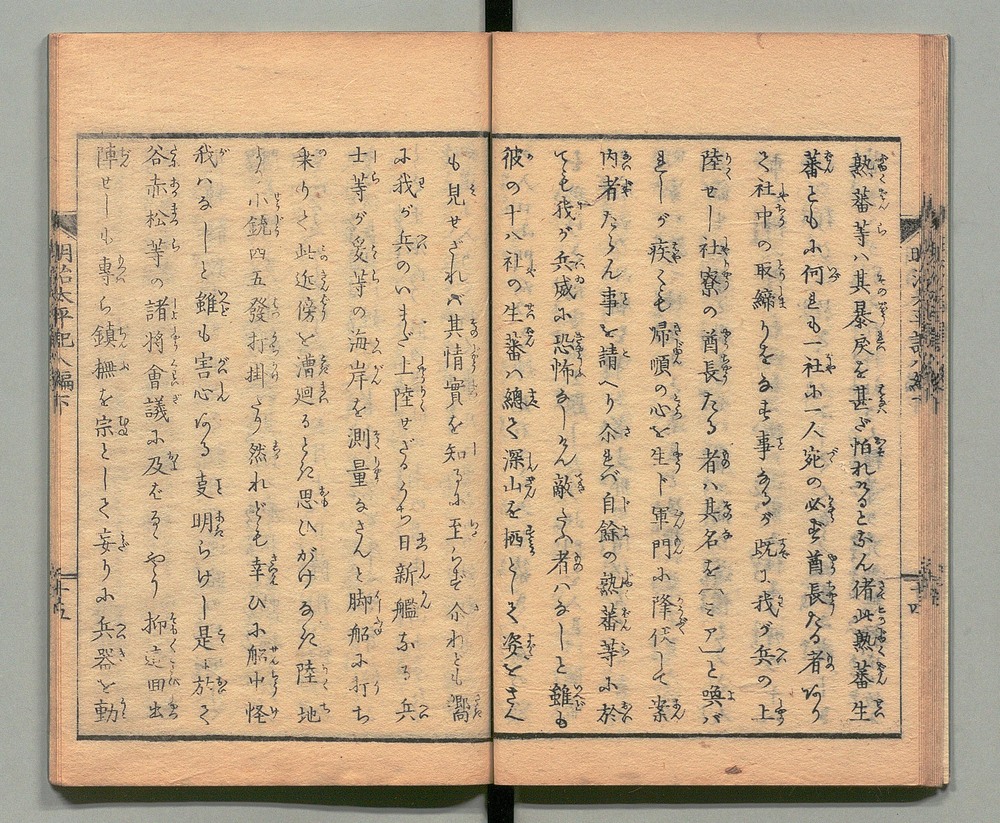 熟蕃等ハ其暴戻を甚だ怕れゐるとなん偖此熟蕃生
蕃ともに何れも一社に一人宛の必ず酋長たる者あり
て社中の取締りをなす事なるが既に我が兵の上
陸せし社寮の酋長たる者ハ其名を［ミア］と喚バ
れしが疾くも帰順の心を生ト軍門に降伏して案
内者たらん事を請へり尒れバ自餘の熟蕃等に於
ても我が兵威に恐怖なしけん敵たふ者ハなしと雖も
彼の十八社の生蕃ハ總て深山を栖として姿をさへ
も見せざれバ其情實を知るに至らず尒れども嚮
に我が兵のいまだ上陸せざるうち日新艦なる兵
士等が爰等の海岸を測量なさんと脚船に打ち
乗りて此近傍を漕廻るとき思ひがけなき陸地
より小銃四五發打掛たり然れども幸ひに船中怪
我ハなしと雖も害心ある事明らけし是に於て
谷赤松等の諸将會議に及バるゝやう抑這回出
陣せしも専ら鎮撫を宗として妄りに兵器を動
明治太平記八編下